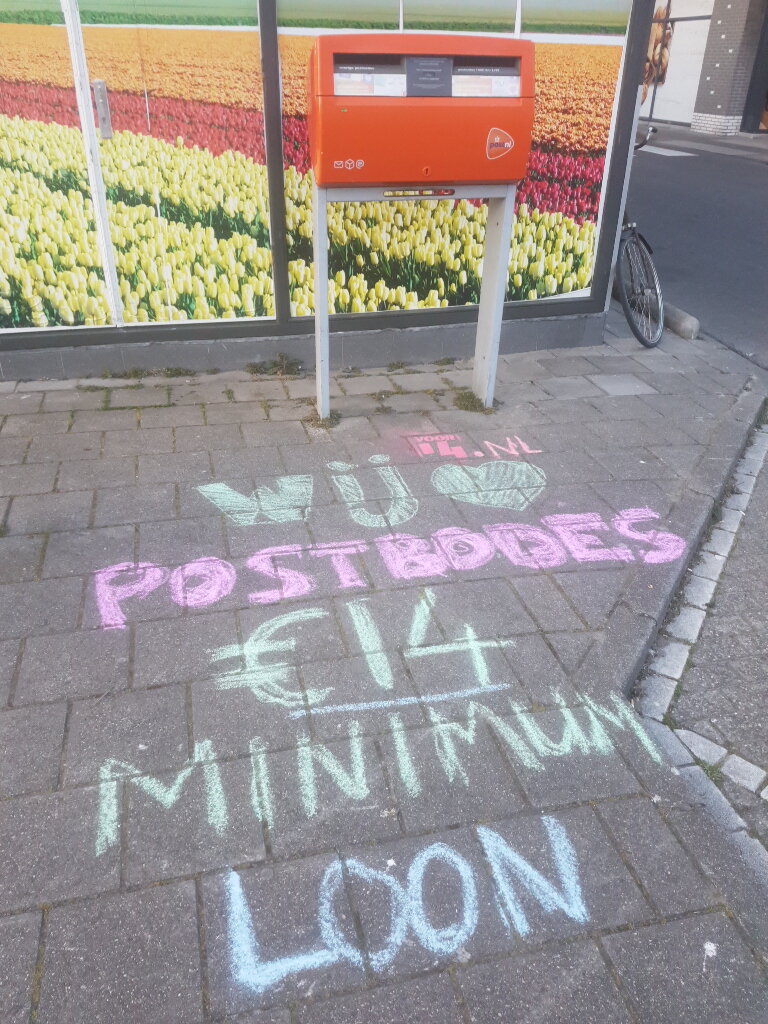 postnl
VOOR
14.NL
WIJ ♥
POSTBODES
€14
MINIMUM
LOON